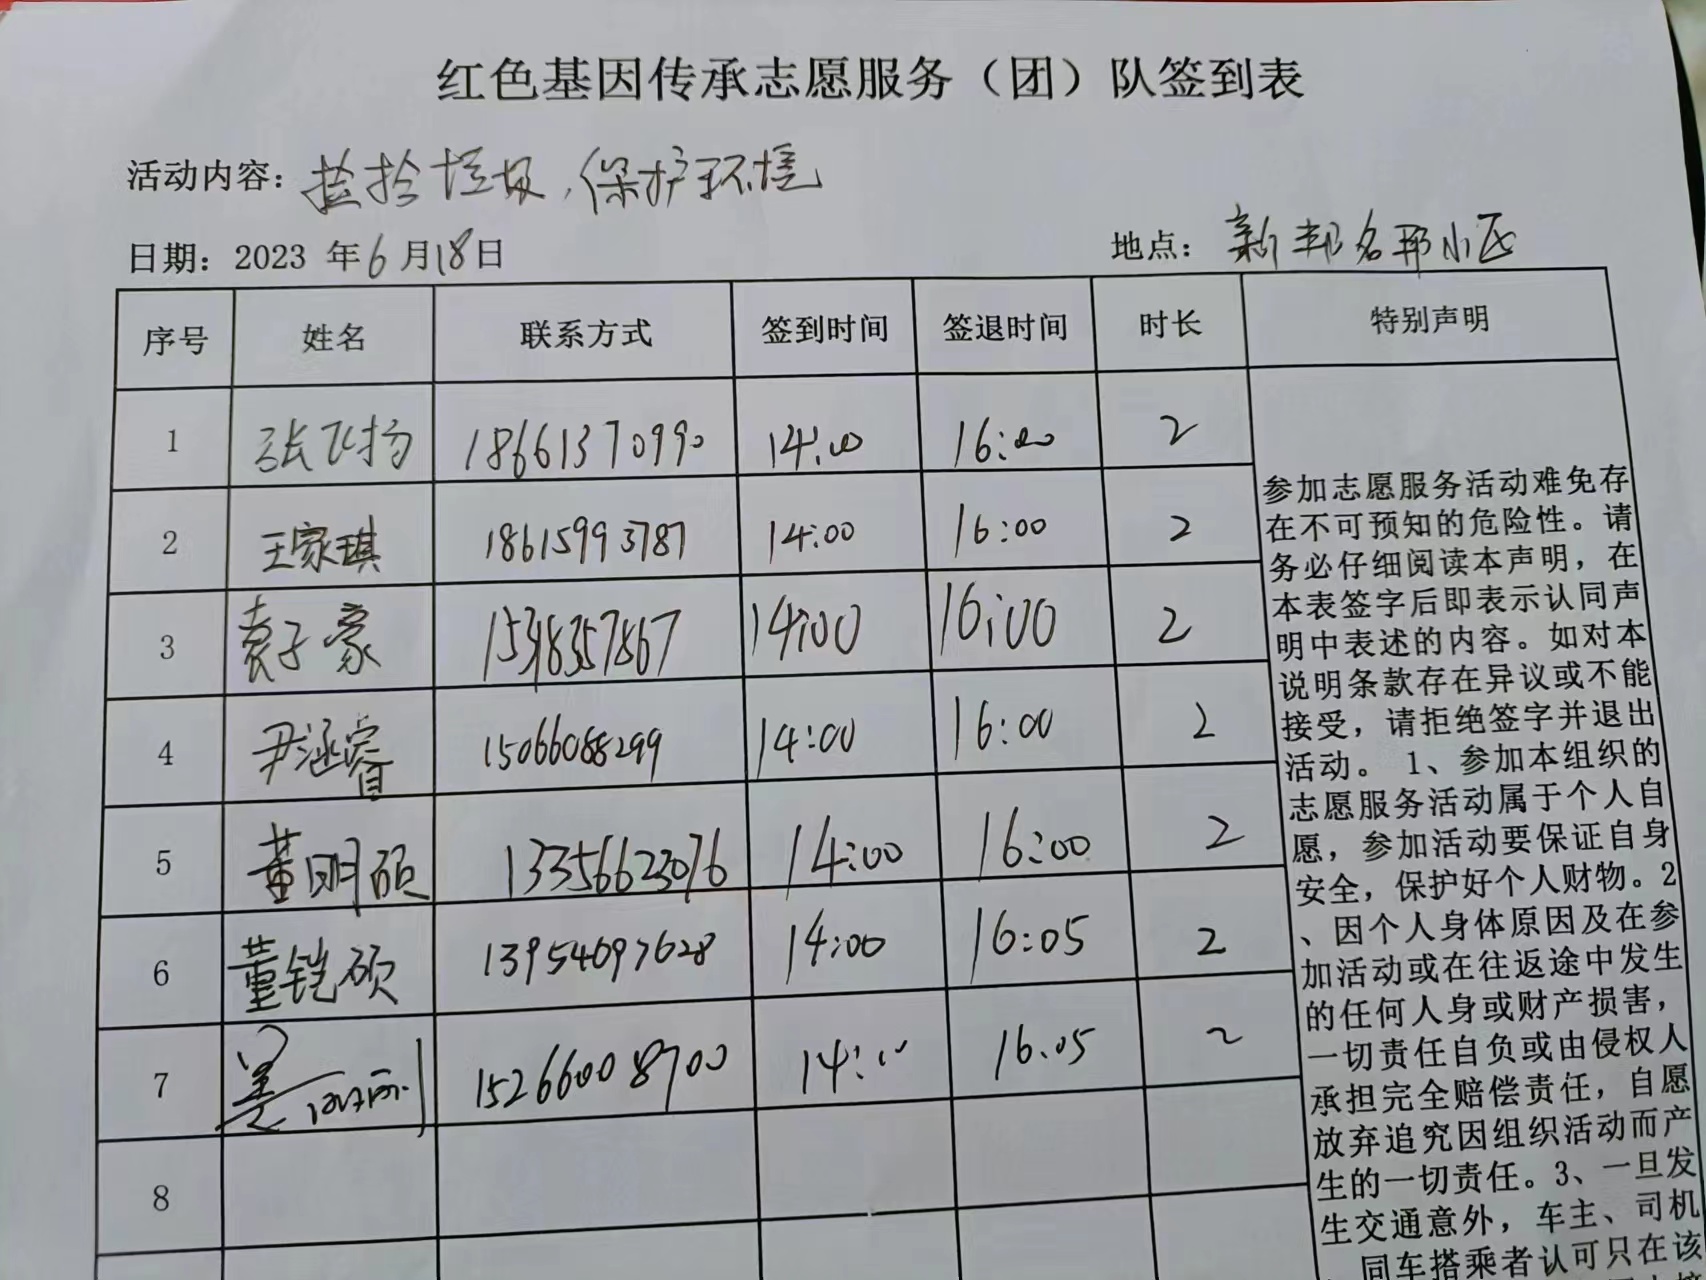 红色基因传承志愿服务（团）队签到表
活动内容：捡拾垃圾，保护环境
日期：2023 年6月18日 地点：新邦名郡小区
序号 姓名 联系方式 签到时间 签退时间 时长 特别声明
1 张飞扬 18661370990 14:00 16:00 2
2 王家琪 18615993787 14:00 16:00 2
3 袁子豪 15318357867 14:00 16:00 2
4 尹涵睿 15066088299 14:00 16:00 2
5 董明硕 13356623076 14:00 16:00 2
6 董铠硕 13954097628 14:00 16:05 2
7 15266008700 14:00 16:05 2
8
参加志愿服务活动难免存
在不可预知的危险性。请
务必仔细阅读本声明，在
本表签字后即表示认同声
明中表述的内容。如对本
说明条款存在异议或不能
接受，请拒绝签字并退出
活动。 1、参加本组织的
志愿服务活动属于个人自
愿，参加活动要保证自身
安全，保护好个人财物。2
、因个人身体原因及在参
加活动或在往返途中发生
的任何人身或财产损害，
一切责任自负或由侵权人
承担完全赔偿责任，自愿
放弃追究因组织活动而产
生的一切责任。3、一旦发
生交通意外，车主、司机
同车搭乘者认可只在该